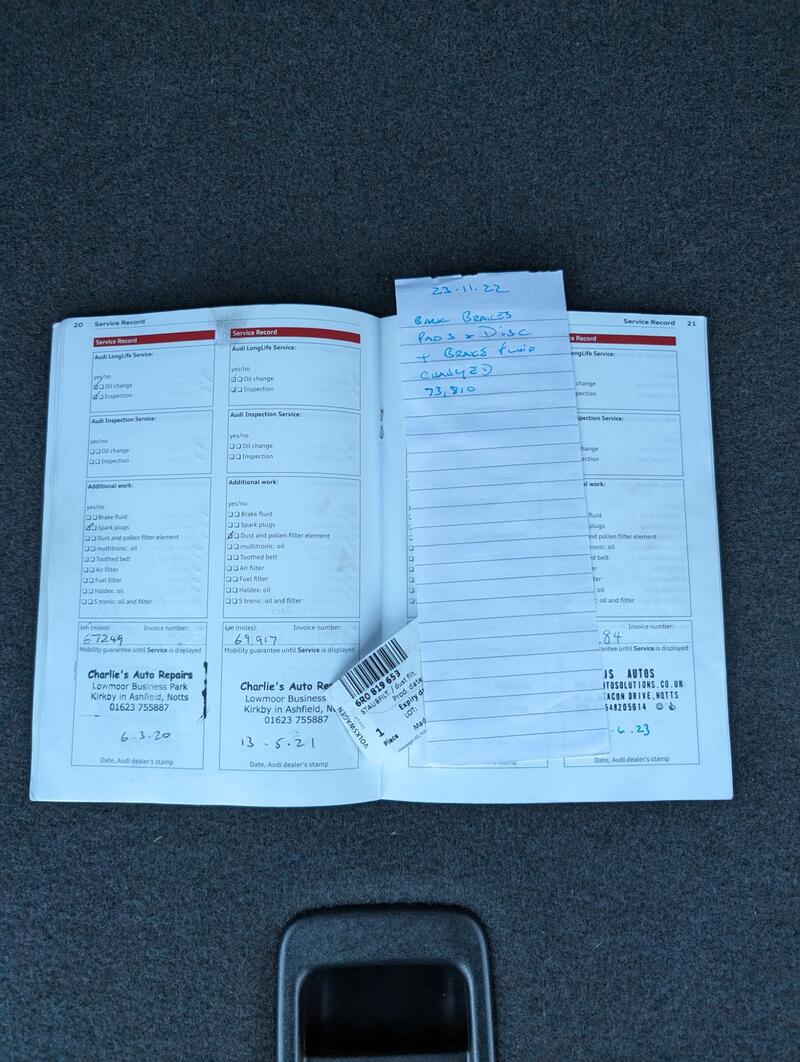 20 Service Record
Service Record
Audi LongLife Service:
yes/no
Oil change
Inspection
Audi Inspection Service:
yes/no
Oil change
Inspection
Additional work:
yes/no
Brake fluid
Spark plugs
Dust and pollen filter element
multitronic: oil
Toothed belt
Air filter
Fuel filter
Haldex: oil
S tronic: oil and filter
km (miles): Invoice number:
67249
Mobility guarantee until Service is displayed
Charlie's Auto Repairs
Lowmoor Business Park
Kirkby in Ashfield, Notts
01623 755887
6.3.20
Date, Audi dealer's stamp
Service Record
Audi LongLife Service:
yes/no
Oil change
Inspection
Audi Inspection Service:
yes/no
Oil change
Inspection
Additional work:
yes/no
Brake fluid
Spark plugs
Dust and pollen filter element
multitronic: oil
Toothed belt
Air filter
Fuel filter
Haldex: oil
S tronic: oil and filter
km (miles): Invoice number:
69.917
Mobility guarantee until Service is displayed
Charlie's Auto Re
Lowmoor Business
Kirkby in Ashfield, N
01623 755887
13.5.21
Date, Audi dealer's stamp
6R0 819 653
STAUBFILT./dust filt.
Prod. date
Expiry d
LOT:
VOLKSWAGEN
1
Piece
Mad
23.11.22
BACK BRAKES
PADS & DISC
+ BRAKE FLUID
CHANGED
73,810
Service Record 21
Record
ongLife Service:
change
pection
spection Service:
change
ection
nal work:
fluid
plugs
nd pollen filter element
ronic: oil
ed belt
filter
er
oil
c: oil and filter
Invoice number:
.84
arantee until Service is displayed
US AUTOS
TOSOLUTIONS.CO.UK
EACON DRIVE,NOTTS
548205614
.6.23
Date, Audi dealer's stamp